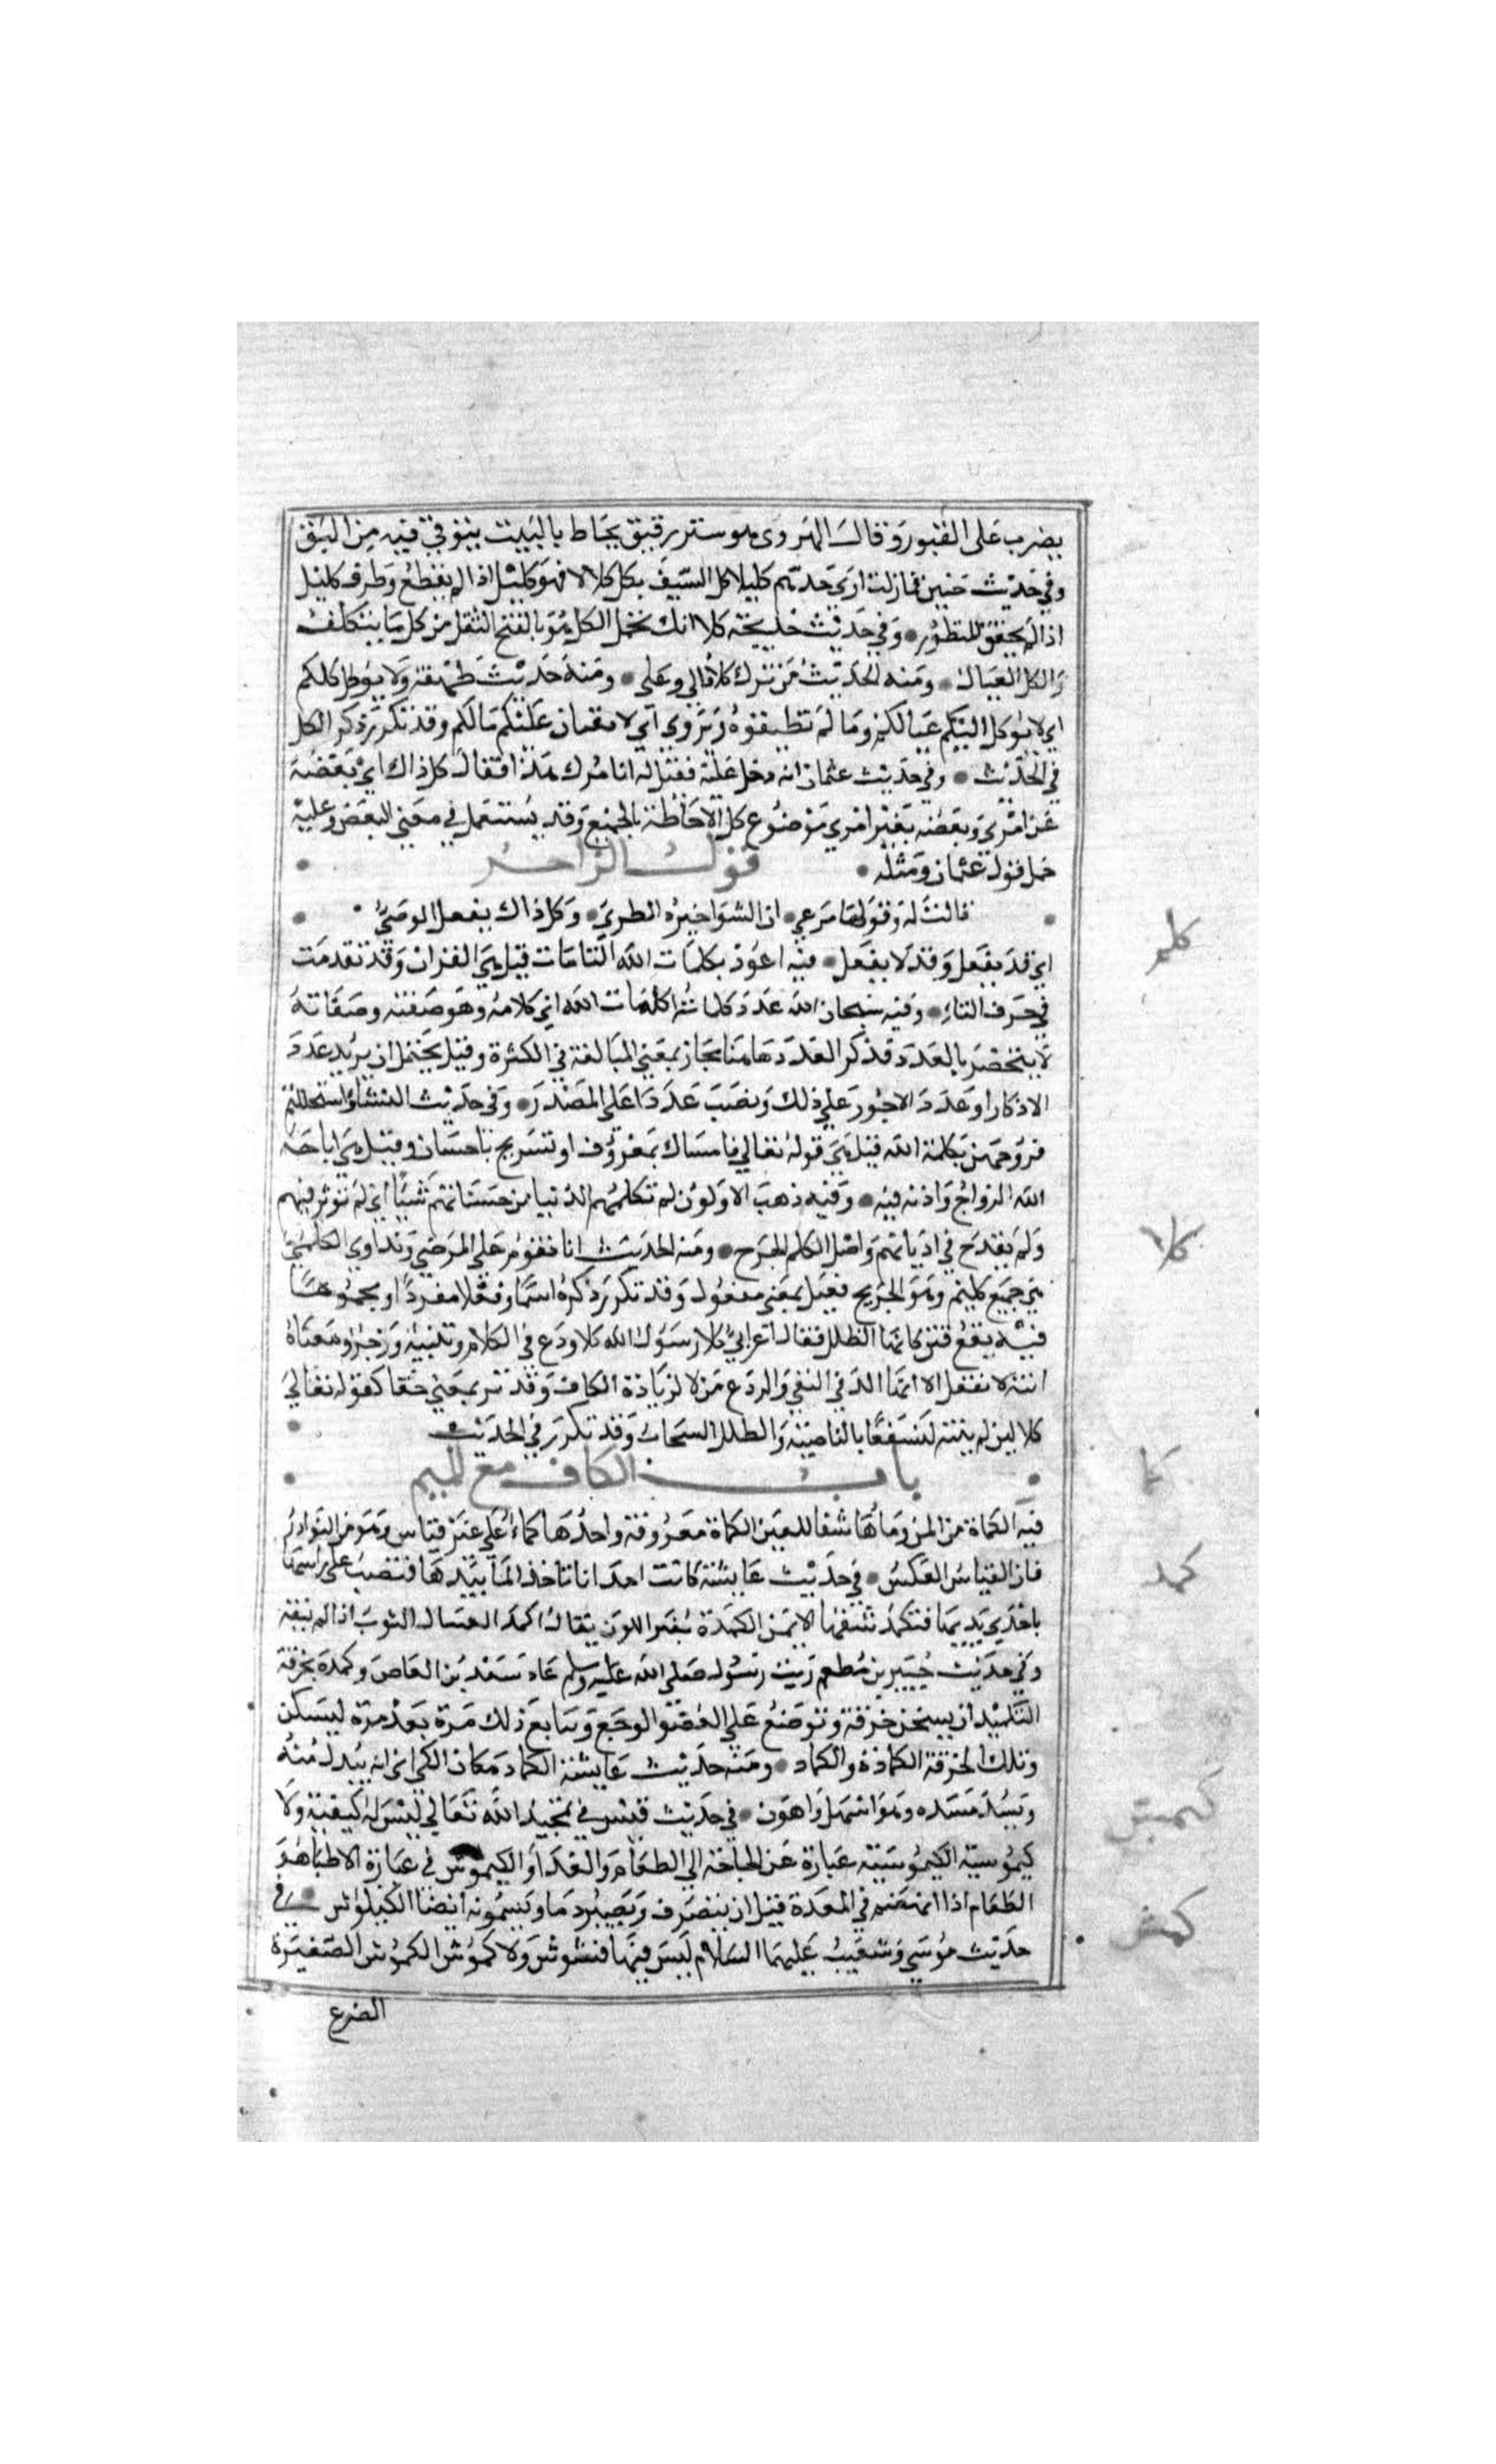 يضرب على القبور وقال الهروى هو ستر رقيق يخاط بالبيت يتوقى فيه من البق
وفي حديث حنين فما زلت ارى حدهم كليلا كل السيف يكل كلالا فهو كليل اذا لم يقطع وطرف كليل
اذا لم يحقق المنظور • وفي حديث خديجة كلا انك تحمل الكل هو بالفتح الثقل من كل ما يتكلف
والكل العيال • ومنه الحديث من ترك كلا فالي وعلى • ومنه حديث طهفة ولا يوكل كلكم
اي لا يوكل اليكم عيالكم وما لم تطيقوه ويروى اي لا يفتات عليكم مالكم وقد تكرر ذكر الكل
في الحديث • وفي حديث عثمان انه دخل عليه فقيل له ابامرك هذا فقال كل ذاك اي بعضه
عن امري وبعضه بغير امري موضوع كل الاحاطة بالجميع وقد يستعمل في معنى البعض وعليه
حمل قول عثمان ومثله • قول الراجز •
• قالت له وقولها مرعي • ان الشوا خيره الطري • وكل ذاك يفعل الوصي •
اي قد يفعل وقد لا يفعل • فيه اعوذ بكلمات الله التامات قيل هي القران وقد تقدمت
في حرف التاء • وفيه سبحان الله عدد كلماته كلمات الله اي كلامه وهو صفته وصفاته
لا ينحصر بالعدد فذكر العدد هاهنا مجاز بمعنى المبالغة في الكثرة وقيل يحتمل ان يريد عدد
الاذكار او عدد الاجور على ذلك ونصب عددا على المصدر • وفي حديث النساء استحللتم
فروجهن بكلمة الله قيل هي قوله تعالى فامساك بمعروف او تسريح باحسان وقيل هي اباحة
الله الزواج واذنه فيه • وفيه ذهب الاولون لم تكلمهم الدنيا من حسناتهم شيئا اي لم توثر فيهم
ولم يقدح في اديانهم واصل الكلم الجرح • ومنه الحديث انا نقوم على المرضى ونداوي الكلمى
هي جميع كليم وهو الجريح فعيل بمعنى مفعول وقد تكرر ذكره اسما وفعلا مفردا او مجموعا
فيه يقع فتن كانها الظلل فقال اعرابي كلا رسول الله كلا ردع في الكلام وتنبيه وزجر ومعناه
انته لا تفعل الا انها اكد في النفي والردع من لا لزيادة الكاف وقد ترد بمعنى حقا كقوله تعالى
كلا لين لم ينته لنسفعا بالناصية والظلل السحاب وقد تكرر في الحديث •
• باب الكاف مع الميم •
فيه الكماة من المن وماؤها شفا للعين الكماة معروفة واحدها كماء على غير قياس وهو من النوادر
فان القياس العكس • في حديث عايشة كانت احدانا تاخذ الما بيدها فتصب على راسها
باحدي يديها فتكمد شقها الايمن الكمدة تغير اللون يقال اكمد الغسال الثوب اذا لم ينقه
وفي حديث جبير بن مطعم رايت رسول الله صلى الله عليه وسلم عاد سعد بن العاص وكمده بخرقة
التكميد ان يسخن خرقة وتوضع على العضو الوجع ويتابع ذلك مرة بعد مرة ليسكن
وتلك الخرقة الكمادة والكماد • ومنه حديث عايشة الكماد مكان الكي اي انه يبدل منه
ويسد مسده وهو اسهل واهون • في حديث قيس في تمجيد الله تعالى ليس له كيفية ولا
كيموسية الكيموسية عبارة عن الحاجة الى الطعام والغذا او الكيموس في عبارة الاطبا هو
الطعام اذا انهضم في المعدة قبل ان ينصرف ويصير دما ويسمونه ايضا الكيلوس • في
حديث موسى وشعيب عليهما السلام ليس فيها فشوش ولا كموش الكموش الصغيرة
الضرع
كلم
كلا
كما
كمد
كمس
كمش